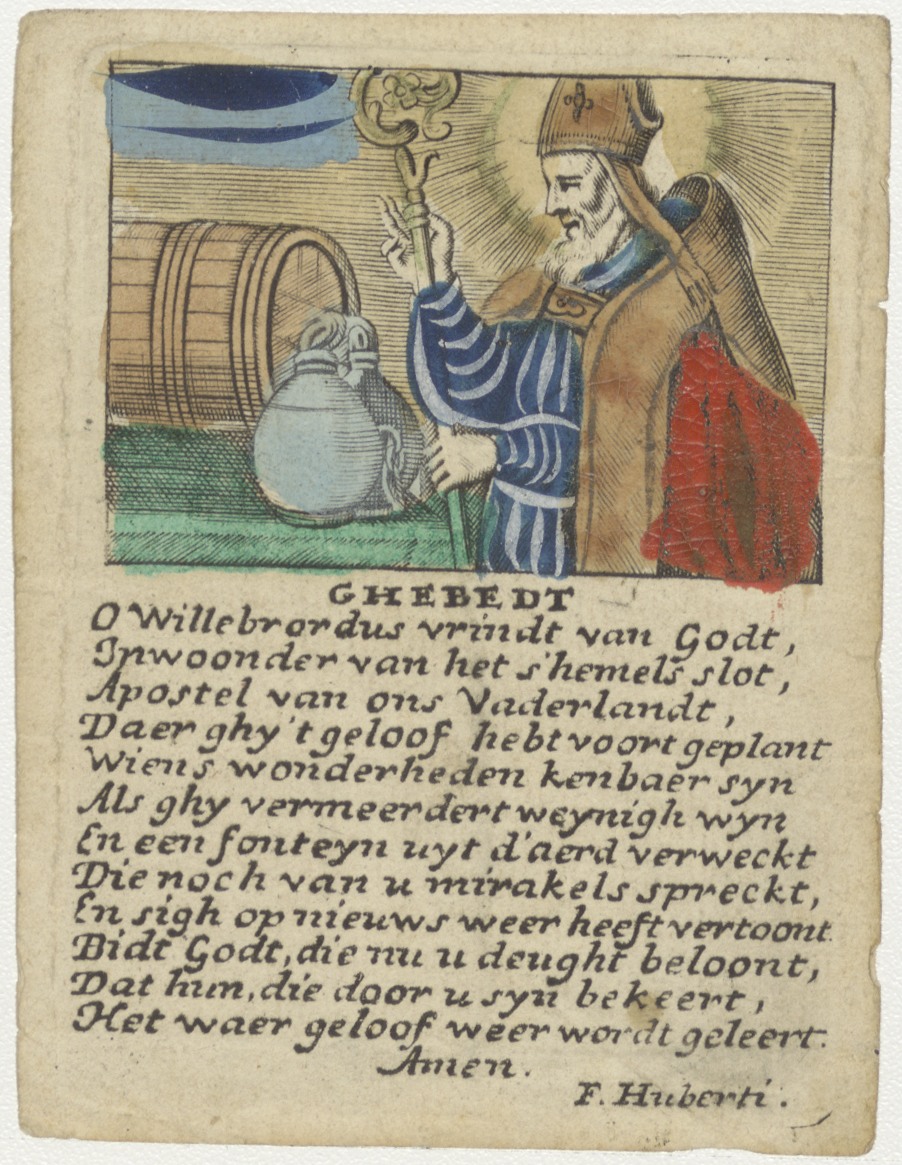 GHEBEDT
O Willebrordus vrindt van Godt,
Inwoonder van het s'hemels slot,
Apostel van ons Vaderlandt,
Daer ghy 't geloof hebt voort geplant
Wiens wonderheden kenbaer syn
Als ghy vermeerdert weynigh wyn
En een fonteyn uyt d'aerd verweckt
Die noch van u mirakels spreckt,
En sigh op nieuws weer heeft vertoont.
Bidt Godt, die nu u deught beloont,
Dat hun, die door u syn bekeert,
Het waer geloof weer wordt geleert.
Amen.
F. Huberti.